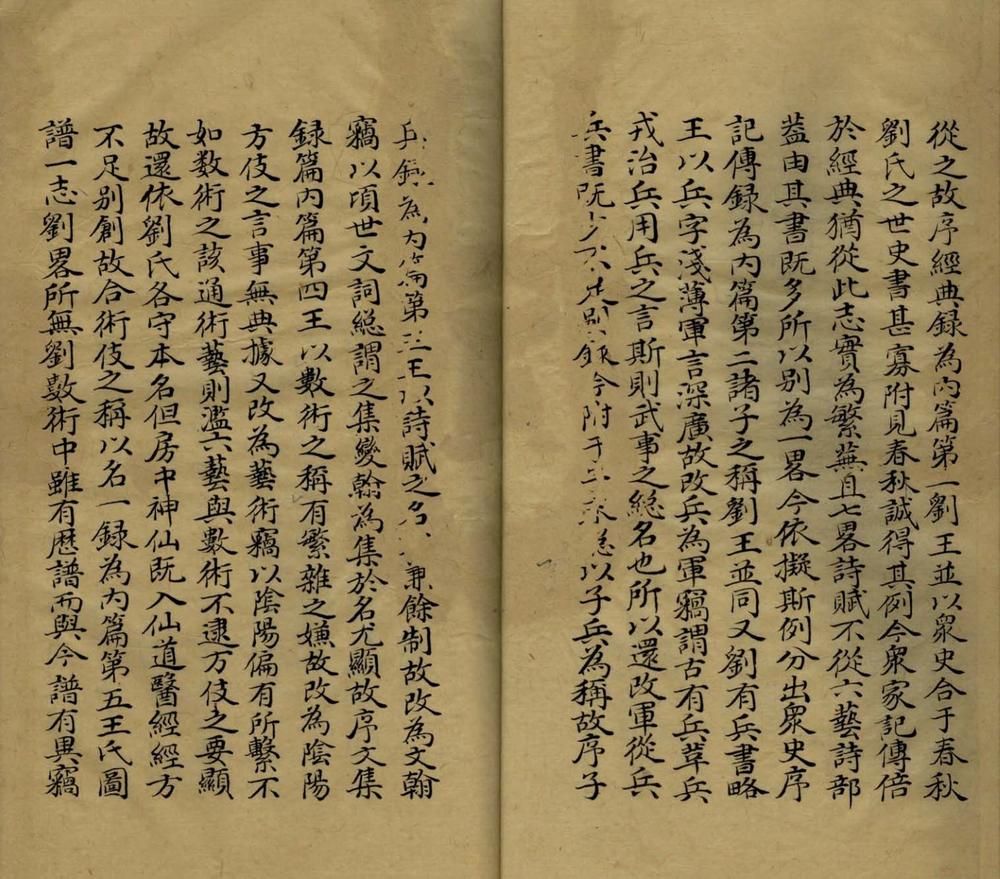 從之故序經典録為内篇第一劉王並以衆史合于春秋
劉氏之世史書甚寡附見春秋誠得其例今衆家記傳倍
於經典猶從此志實為繁蕪且七畧詩賦不從六藝詩部
葢由其書既多所以别為一畧今依擬斯例分出衆史序
記傳録為内篇第二諸子之稱劉王並同又劉有兵書略
王以兵字淺薄軍言深廣故改兵為軍竊謂古有兵革兵
戎治兵用兵之言斯則武事之緫名也所以還改軍從兵
兵書既少不足别録今附于子末緫以子兵為稱故序子
兵録為内篇第三王以詩賦之名兼餘制故改為文翰
竊以頃世文詞緫謂之集變翰為集於名尤顯故序文集
録篇内篇第四王以數術之稱有繁雜之嫌故改為陰陽
方伎之言事無典據又改為藝術竊以陰陽偏有所繫不
如数術之該通術藝則濫六藝與數術不逮方伎之要顯
故還依劉氏各守本名但房中神仙既入仙道醫經經方
不足别創故合術伎之稱以名一録為内篇第五王氏圖
譜一志劉畧所無劉數術中雖有歴譜而與今譜有異竊